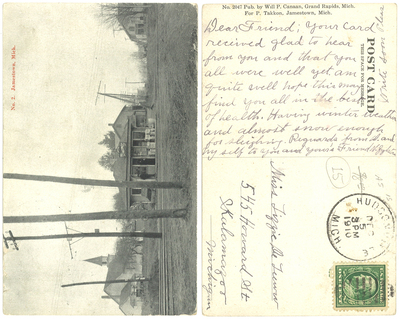 No. 2. Jamestown, Mich.
No. 2047 Pub. by Will P. Canaan, Grand Rapids, Mich.
For P. Takken, Jamestown, Mich.
POST CARD
THIS SPACE FOR ADDRESS.
Dear Friend; Your Card
received glad to hear
from you and that you
all were well yet am
quite well hope this may
find you all in the best
of health. Having winter weather
and almost snow enough
for sleighing. Regards from
my self to you and yours Friend
Write soon Please
Miss Lizzie De
545 Howard St
Kalamazoo
Michigan
15
HUDSONVILLE
DEC
5
3 PM
1910
MICH.